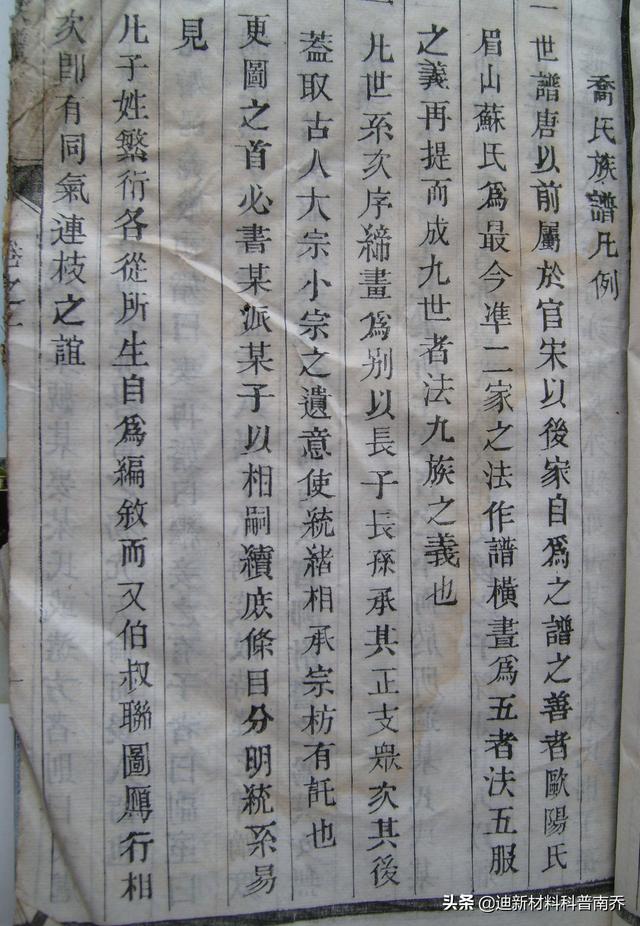 喬氏族譜凡例
一世譜唐以前屬於官宋以後家自爲之譜之善者歐陽氏
眉山蘇氏爲最今凖二家之法作譜橫畫爲五者法五服
之義再提而成九世者法九族之義也
一凡世系次序締畫爲别以長子長孫承其正支衆次其後
蓋取古人大宗小宗之遺意使統緒相承宗枋有託也
更圖之首必書某派某子以相嗣續庶條目分明統系易
見
凡子姓繁衍各從所生自爲編敘而又伯叔聯圖鴈行相
次卽有同氣連枝之誼
卷之一
头条 @迪新材料科普南乔